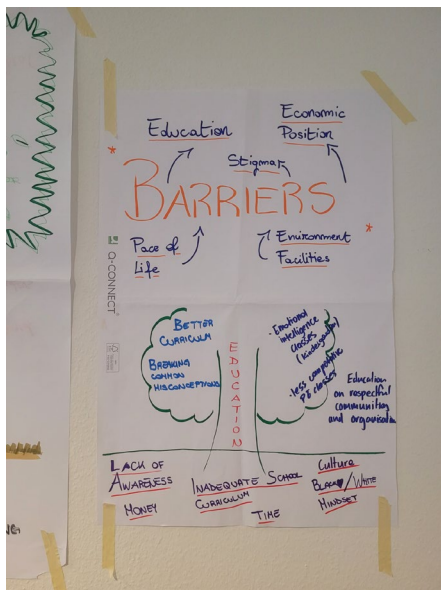 Education
Economic
Position
Stigma
BARRIERS
Pace of
Life
Environment
Facilities
Q-CONNECT
BETTER
CURRICULUM
BREAKING
COMMON
MISCONCEPTIONS
EDUCATION
· Emotional
Intelligence
classes
(kindergarten)
· less competitive
PE classes
Education
on respectful
communities
and organisation
LACK OF
AWARENESS
MONEY
INADEQUATE SCHOOL
CURRICULUM
TIME
Culture
BLACK/WHITE
MINDSET